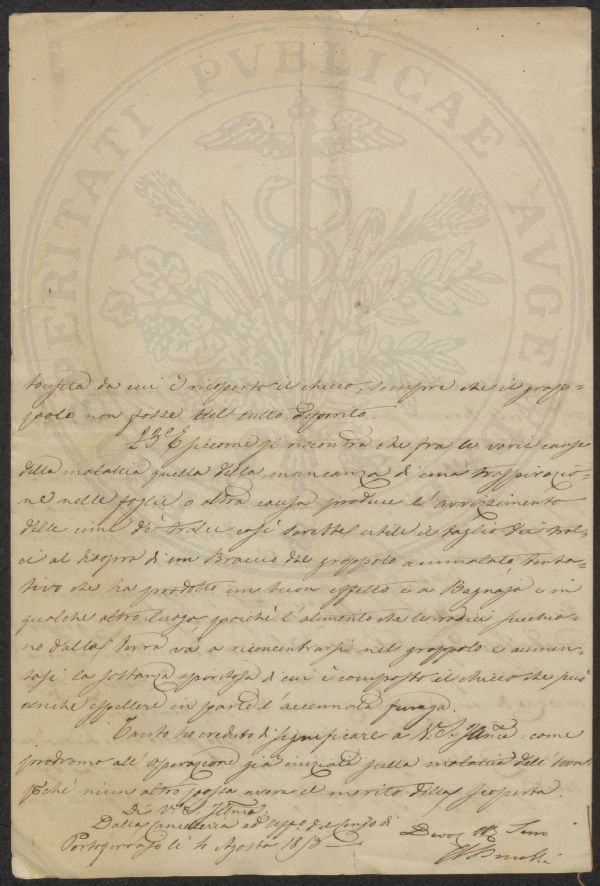 PERITATI PVBLICAE AVGE
da cui è ricoperto il chicco, sempre che il grop-
polo non fosse del tutto
E siccome si riscontra che fra le varie cause
della malattia quella della mancanza di una traspirazio-
ne nelle foglie o altra causa produce l'
delle cime de' tralci così sarebbe utile il taglio dei tral-
ci al disopra di un Braccio dal groppolo ammalato, tenta-
tivo che ha prodotto un buon effetto e a Bagnaja e in
qualche altro luogo, poiché l'alimento che le radici succhia-
no dalla terra và a riconcentrarsi nel groppolo e aumen-
tasi la sostanza spiritosa di cui è composto il chicco che può
anche espellere in parte l'accennata
Tanto ho creduto di significare a V. S. Illma come
prodromo all'operazione già iniziata sulla malattia dell'
perché niun altro possa avere il merito della scoperta.
Di V. S. Illma
Dalla Cancelleria ed
Portoferrajo li 4 Agosto 185